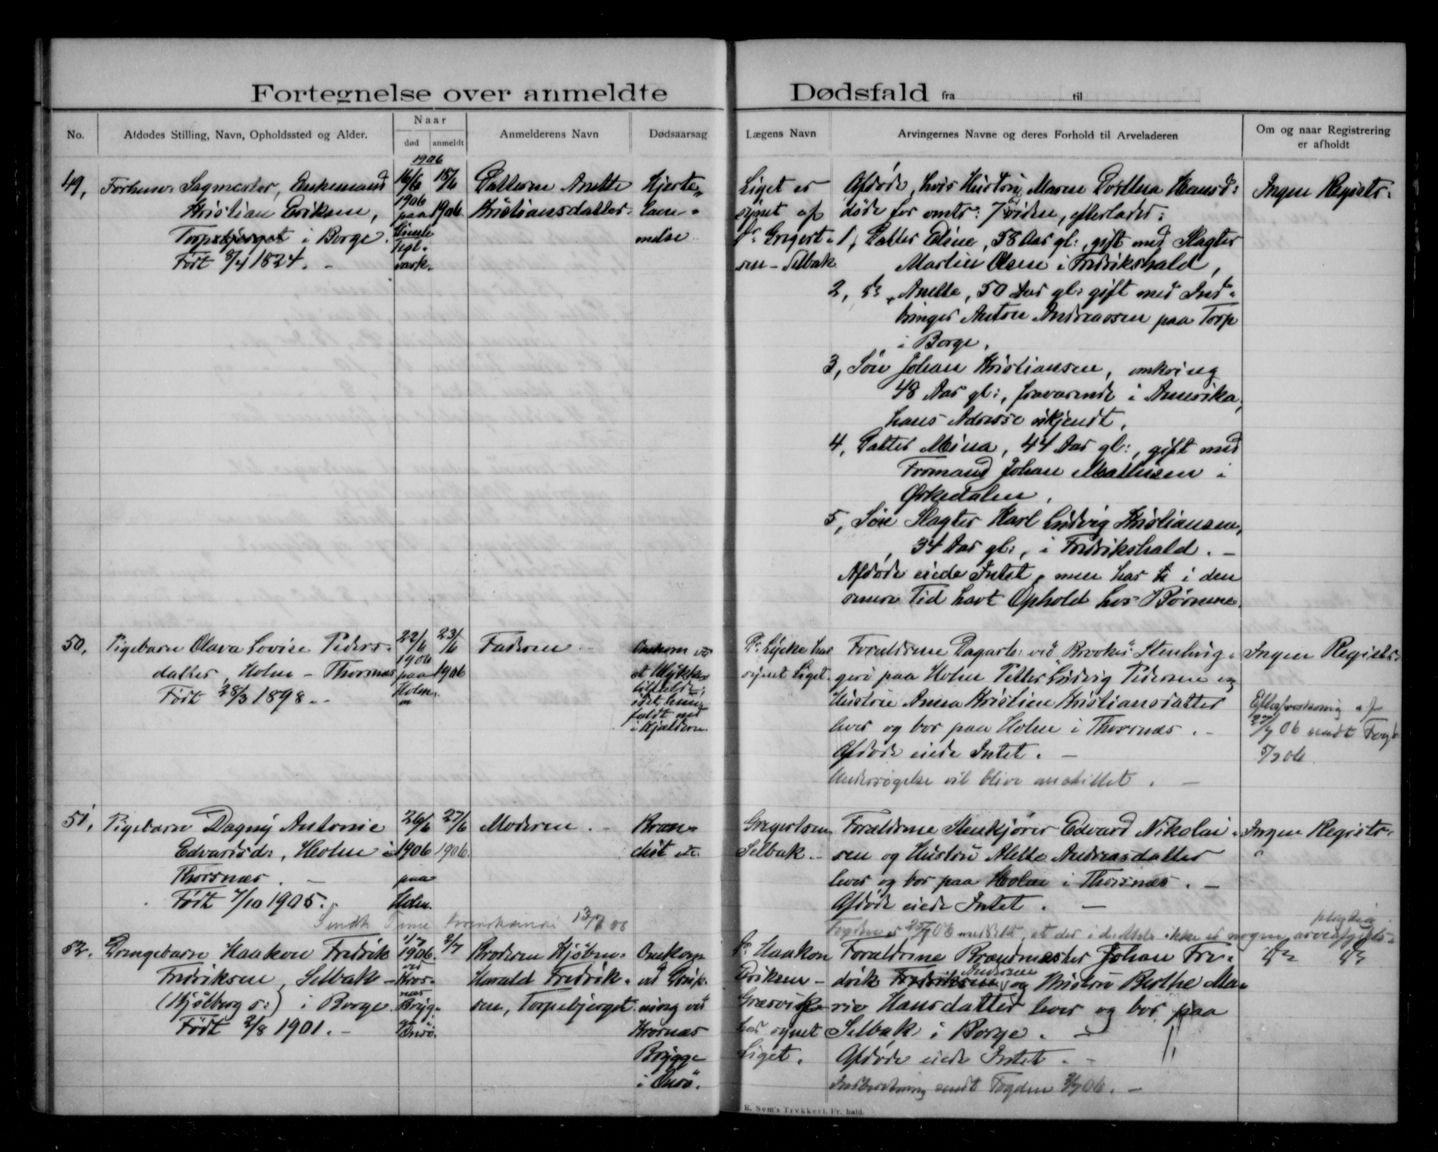 Fortegnelse over anmeldte Dødsfald fra til
No.
Afdødes Stilling, Navn, Opholdssted og Alder.
Naar
død
anmeldt
Anmelderens Navn
Dødsaarsag
Lægens Navn
Arvingernes Navne og deres Forhold til Arveladeren
Om og naar Registrering
er afholdt
1906
49,
Forhenv: Sagmester, Enkemand
Kristian Eriksen,
Torpebjerget i Borge.
Født 8/4 1824. –
16/6
1906
paa
18/6
1906
Datteren Anette
Kristiansdatter.
Hjerte
lam-
melse
Liget er
synet af
Dr Gregert-
sen – Selbak
Afdøde, hvis Hustru, Maren Dorthea Hansd:
døde for omtr: 7 siden, efterlader:
1, Datter Eline, 58 Aar gl:, gift med Slagter
Martin Olsen i Fredrikshald,
2, ds Anette, 50 Aar gl: gift med Ind-
bringer Anton Andreassen paa Torp
i Borge.
3, Søn Johan Kristiansen, omkring
48 Aar gl:, fraværende i Amerika,
hans Adresse ukjendt.
4, Datter Mina, 44 Aar gl:, gift med
Formand Johan Mathisen i
Ørkedalen.
5, Søn Slagter Karl Ludvig Kristiansen,
34 Aar gl:, i Fredrikshald. –
Afdøde eiede Intet, men har i den
senere Tid havt Ophold hos Børnene.
Ingen Registr:
50,
Pigebarn Olava Lovise Peders-
datter, Holm – Thorsnæs
Født 28/3 1898. –
22/6
1906
paa
Holm
23/6
1906
Faderen
Omkom ved
et Ulykkes
tilfælde,
idet hun
faldt ned
i Kjelderen
Dr Lycke har
synet Liget.
Forældrene Dagarb: ved Brokes Stenhug-
geri paa Holm Petter Ludvig Pedersen og
Hustru Anna Kristine Kristiansdatter
lever og bor paa Holm i Thorsnæs. –
Afdøde eiede Intet. –
Undersøgelse vil blive anstillet. –
Ingen Registr:
Efterforskning af
06 sendt Fogd
5/7 06
51,
Pigebarn Dagny Antonie
Edvardsd:, Holm i
Thorsnæs. –
Født 7/10 1905. –
26/6
1906
paa
Holm.
27/6
1906.
Moderen. –
Bron-
chit
Gregertsen
Selbak. –
Forældrene Stenkjører Edvard Nikolai-
sen og Hustru Alette Andreasdatter
lever og bor paa Holm i Thorsnæs. –
Afdøde eiede Intet. –
Ingen Registr:
52,
Drengebarn Haakon Fredrik
Fredriksen, Selbak –
(Kjølberg s:) i Borge
Født 2/8 1901. –
1/7
1906.
2/7
Broderen Hjalmar
Harald Fredrik-
sen, Torpebjerget
Omkom
ved
ning ved
Krosnæs
Brygge
i Onsø.
Dr Haakon
Eriksen –
Græsvig
har synet
Liget.
Forældrene Brændmester Johan Fre-
drik Fredriksen Andersen og Hustru Berthe Ma-
rie Hansdatter lever og bor paa
Selbak i Borge. –
Afdøde eiede Intet. –
Indberetning sendt Fogden 3/7 06. –
E. Sem's Trykkeri, Fr.hald.